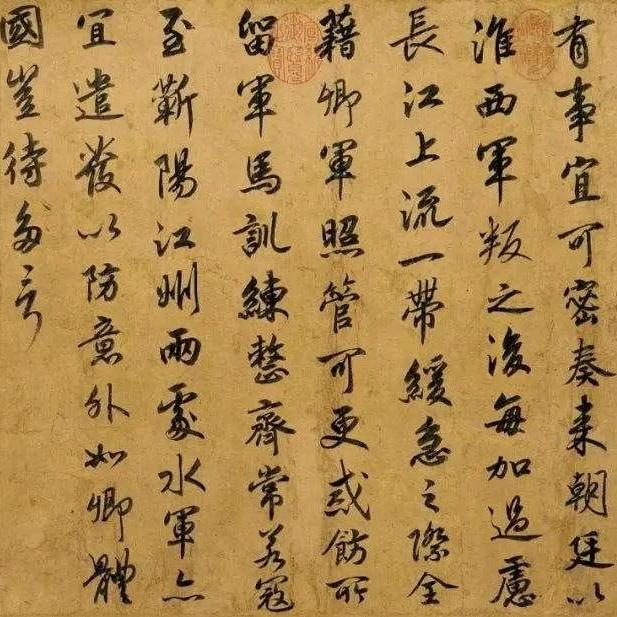 有事宜可密奏来朝廷以
淮西軍叛之後每加過慮
長江上流一帶緩急之際全
藉卿軍照管可更戒飭所
留軍馬訓練整齊常若寇
至蘄陽江州兩處水軍亦
宜遣發以防意外如卿體
國豈待多言